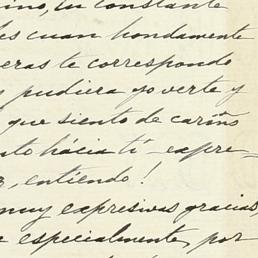 ino, tu constante
les cuan hondamente
eras te correspondo
y pudiera yo verte y
que siento de cariño
nto hácia tí - expre-
r, entiendo!
muy expresivas gracias,
e especialmente, por